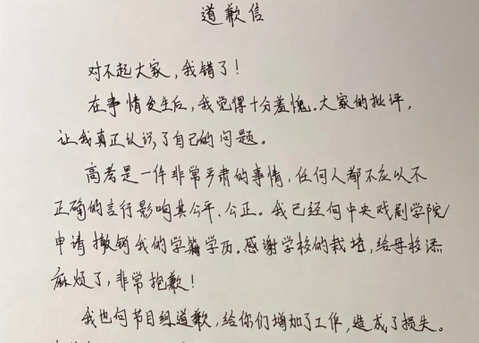 道歉信
对不起大家，我错了！
在事情发生后，我觉得十分羞愧。大家的批评，
让我真正认识了自己的问题。
高考是一件非常严肃的事情，任何人都不应以不
正确的言行影响其公平、公正。我已经向中央戏剧学院
申请撤销我的学籍学历。感谢学校的栽培，给母校添
麻烦了，非常抱歉！
我也向节目组道歉，给你们增加了工作，造成了损失。